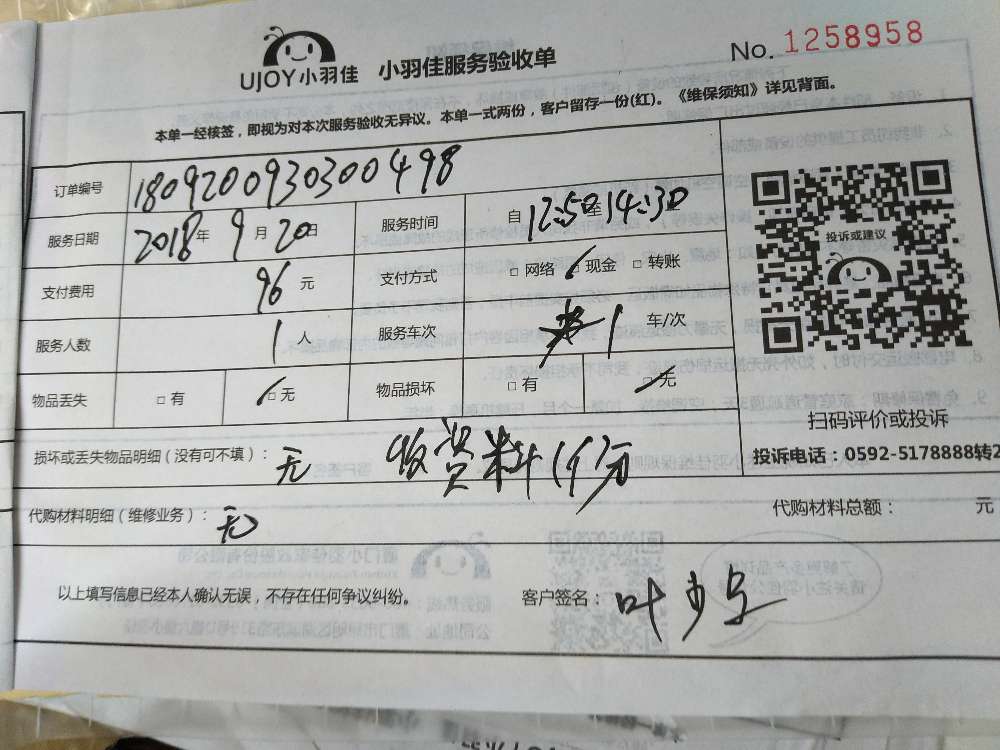 UJOY小羽佳 小羽佳服务验收单 No. 1258958
本单一经核签，即视为对本次服务验收无异议。本单一式两份，客户留存一份(红)。《维保须知》详见背面。
订单编号 180920093030​0498
服务日期 2018年9月20日 服务时间 自12:50至14:30
支付费用 96元 支付方式 □网络 ☑现金 □转账
服务人数 1人 服务车次 1 车/次
物品丢失 □有 ☑无 物品损坏 □有 ☑无
投诉或建议
扫码评价或投诉
投诉电话：0592-5178888转2
损坏或丢失物品明细（没有可不填）：无 收资料1份
代购材料明细（维修业务）：无 代购材料总额： 元
以上填写信息已经本人确认无误，不存在任何争议纠纷。 客户签名：叶少